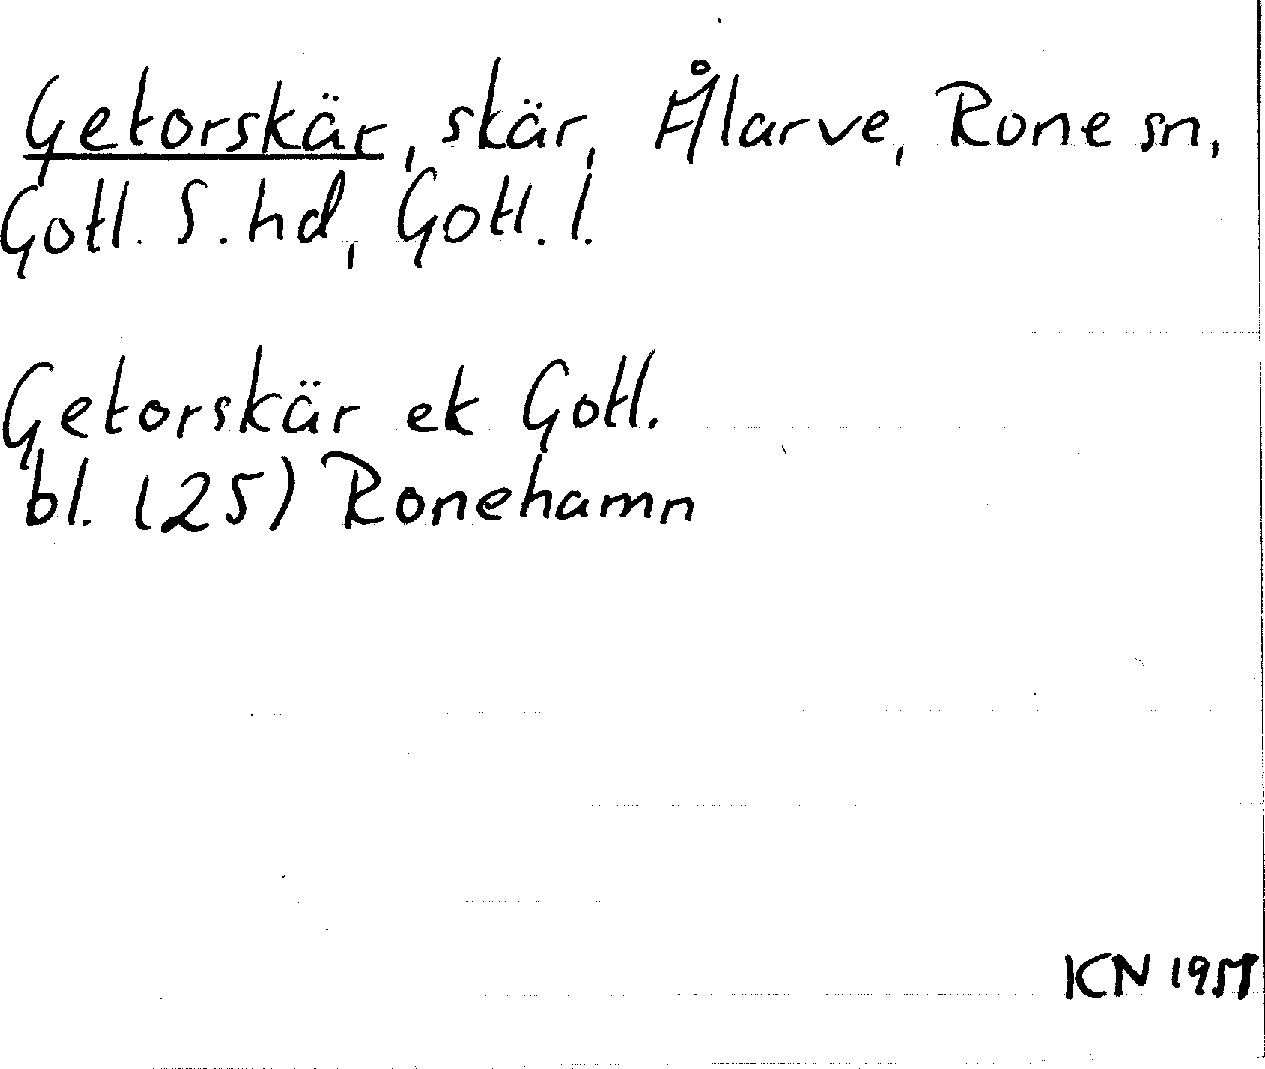 Getorskär, skär, Ålarve, Rone sn,
Gotl. S. hd, Gotl. l.
Getorskär ek Gotl.
bl. (25) Ronehamn
ICN